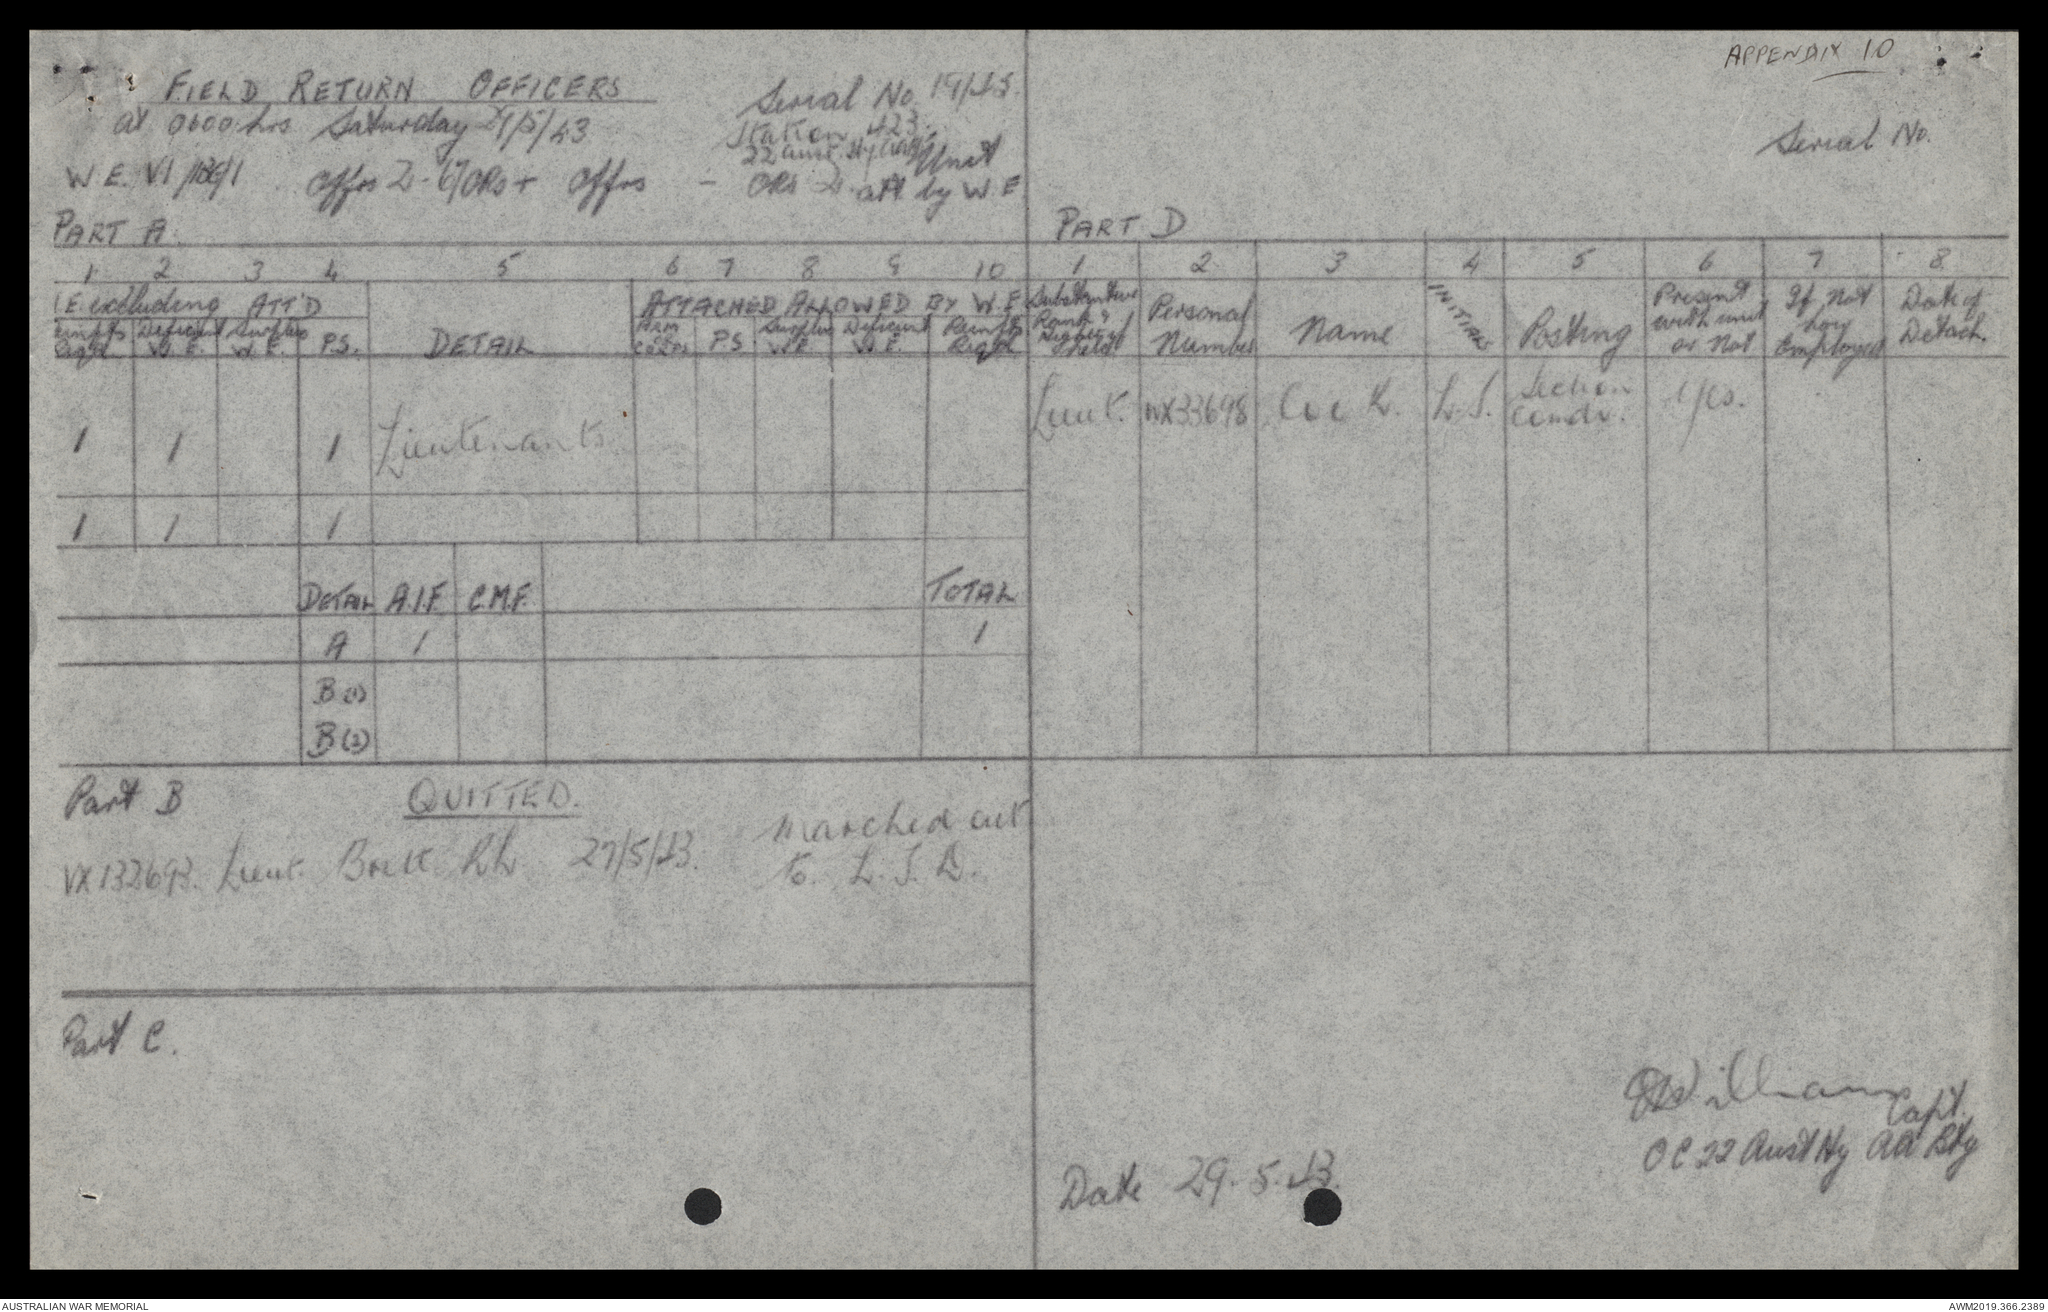 APPENDIX 10
FIELD RETURN OFFICERS
at 0600 hrs Saturday 29/5/43
Serial No. 19/43.
Station 423.
22 Aust Hy Unit
W.E. VI /186/1 Offrs 2 - 67 ORs + Offrs - ORs 2. att by W.E
Serial No.
PART A.
1 2 3 4 5 6 7 8 9 10
I.E. excluding ATT'D
ATTACHED ALLOWED BY W.E.
Reinfts Reqd
Deficient W.E.
Surplus W.E.
P.S.
DETAIL
ARM CORPS
P.S
Surplus W.E.
Deficient W.E.
Reinfts Reqd
1 1 1 Lieutenants
1 1 1
DETAIL A.I.F. C.M.F. TOTAL
A 1 1
B (1)
B (2)
Part B QUITTED.
VX132693. Lieut. Brett. 27/5/43. Marched out
to L.T.D.
Part C.
PART D
1 2 3 4 5 6 7 8
Substantive Rank &
Personal Number
Name
INITIALS
Posting
Present with unit or Not
If Not how Employed
Date of Detach.
Lieut. Section Comdr. Yes.
Date 29.5.43.
Williams Capt.
OC 22 Aust Hy AA Bty
AUSTRALIAN WAR MEMORIAL
AWM2019.366.2389